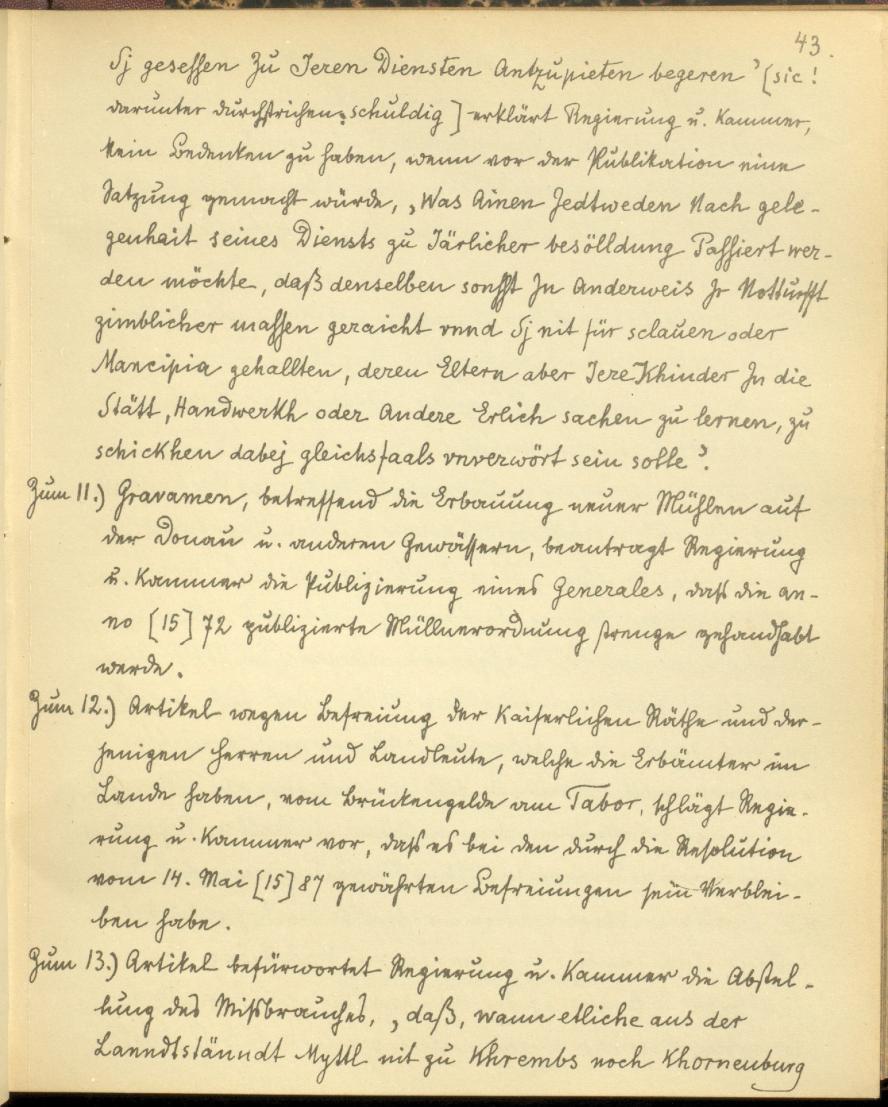 43.
Sj gesessen zu Jeren Diensten Antzupieten begeren' [sic!
darunter durchstrichen: schuldig] erklärt Regierung u. Kammer,
kein Bedenken zu haben, wenn vor der Publikation eine
Satzung gemacht würde, ‚Was Ainen Jedtweden Nach gele-
genhait seines Diensts zu Järlicher besölldung Passiert wer-
den möchte, daß denselben sonsst Jn Anderweis Jr Notturfft
zimblicher massen geraicht vnnd Sj nit für sclauen oder
Mancipia gehallten, deren Eltern aber Jere Khinder Jn die
Stätt, Handwerkh oder Andere Erlich sachen zu lernen, zu
schickhen dabej gleichsfaals vnverwört sein solle'.
Zum 11.) Gravamen, betreffend die Erbauung neuer Mühlen auf
der Donau u. anderen Gewässern, beantragt Regierung
u. Kammer die Publizierung eines Generales, dass die an-
no [15]72 publizierte Müllnerordnung strenge gehandhabt
werde.
Zum 12.) Artikel wegen Befreiung der Kaiserlichen Räthe und der-
jenigen Herren und Landleute, welche die Erbämter im
Lande haben, vom Brückengelde am Tabor, schlägt Regie-
rung u. Kammer vor, dass es bei den durch die Resolution
vom 14. Mai [15]87 gewährten Befreiungen sein Verblei-
ben habe.
Zum 13.) Artikel befürwortet Regierung u. Kammer die Abstel-
lung des Missbrauches, ‚daß, wann etliche aus der
Lanndtstänndt Myttl nit zu Khrembs noch Khornenburg